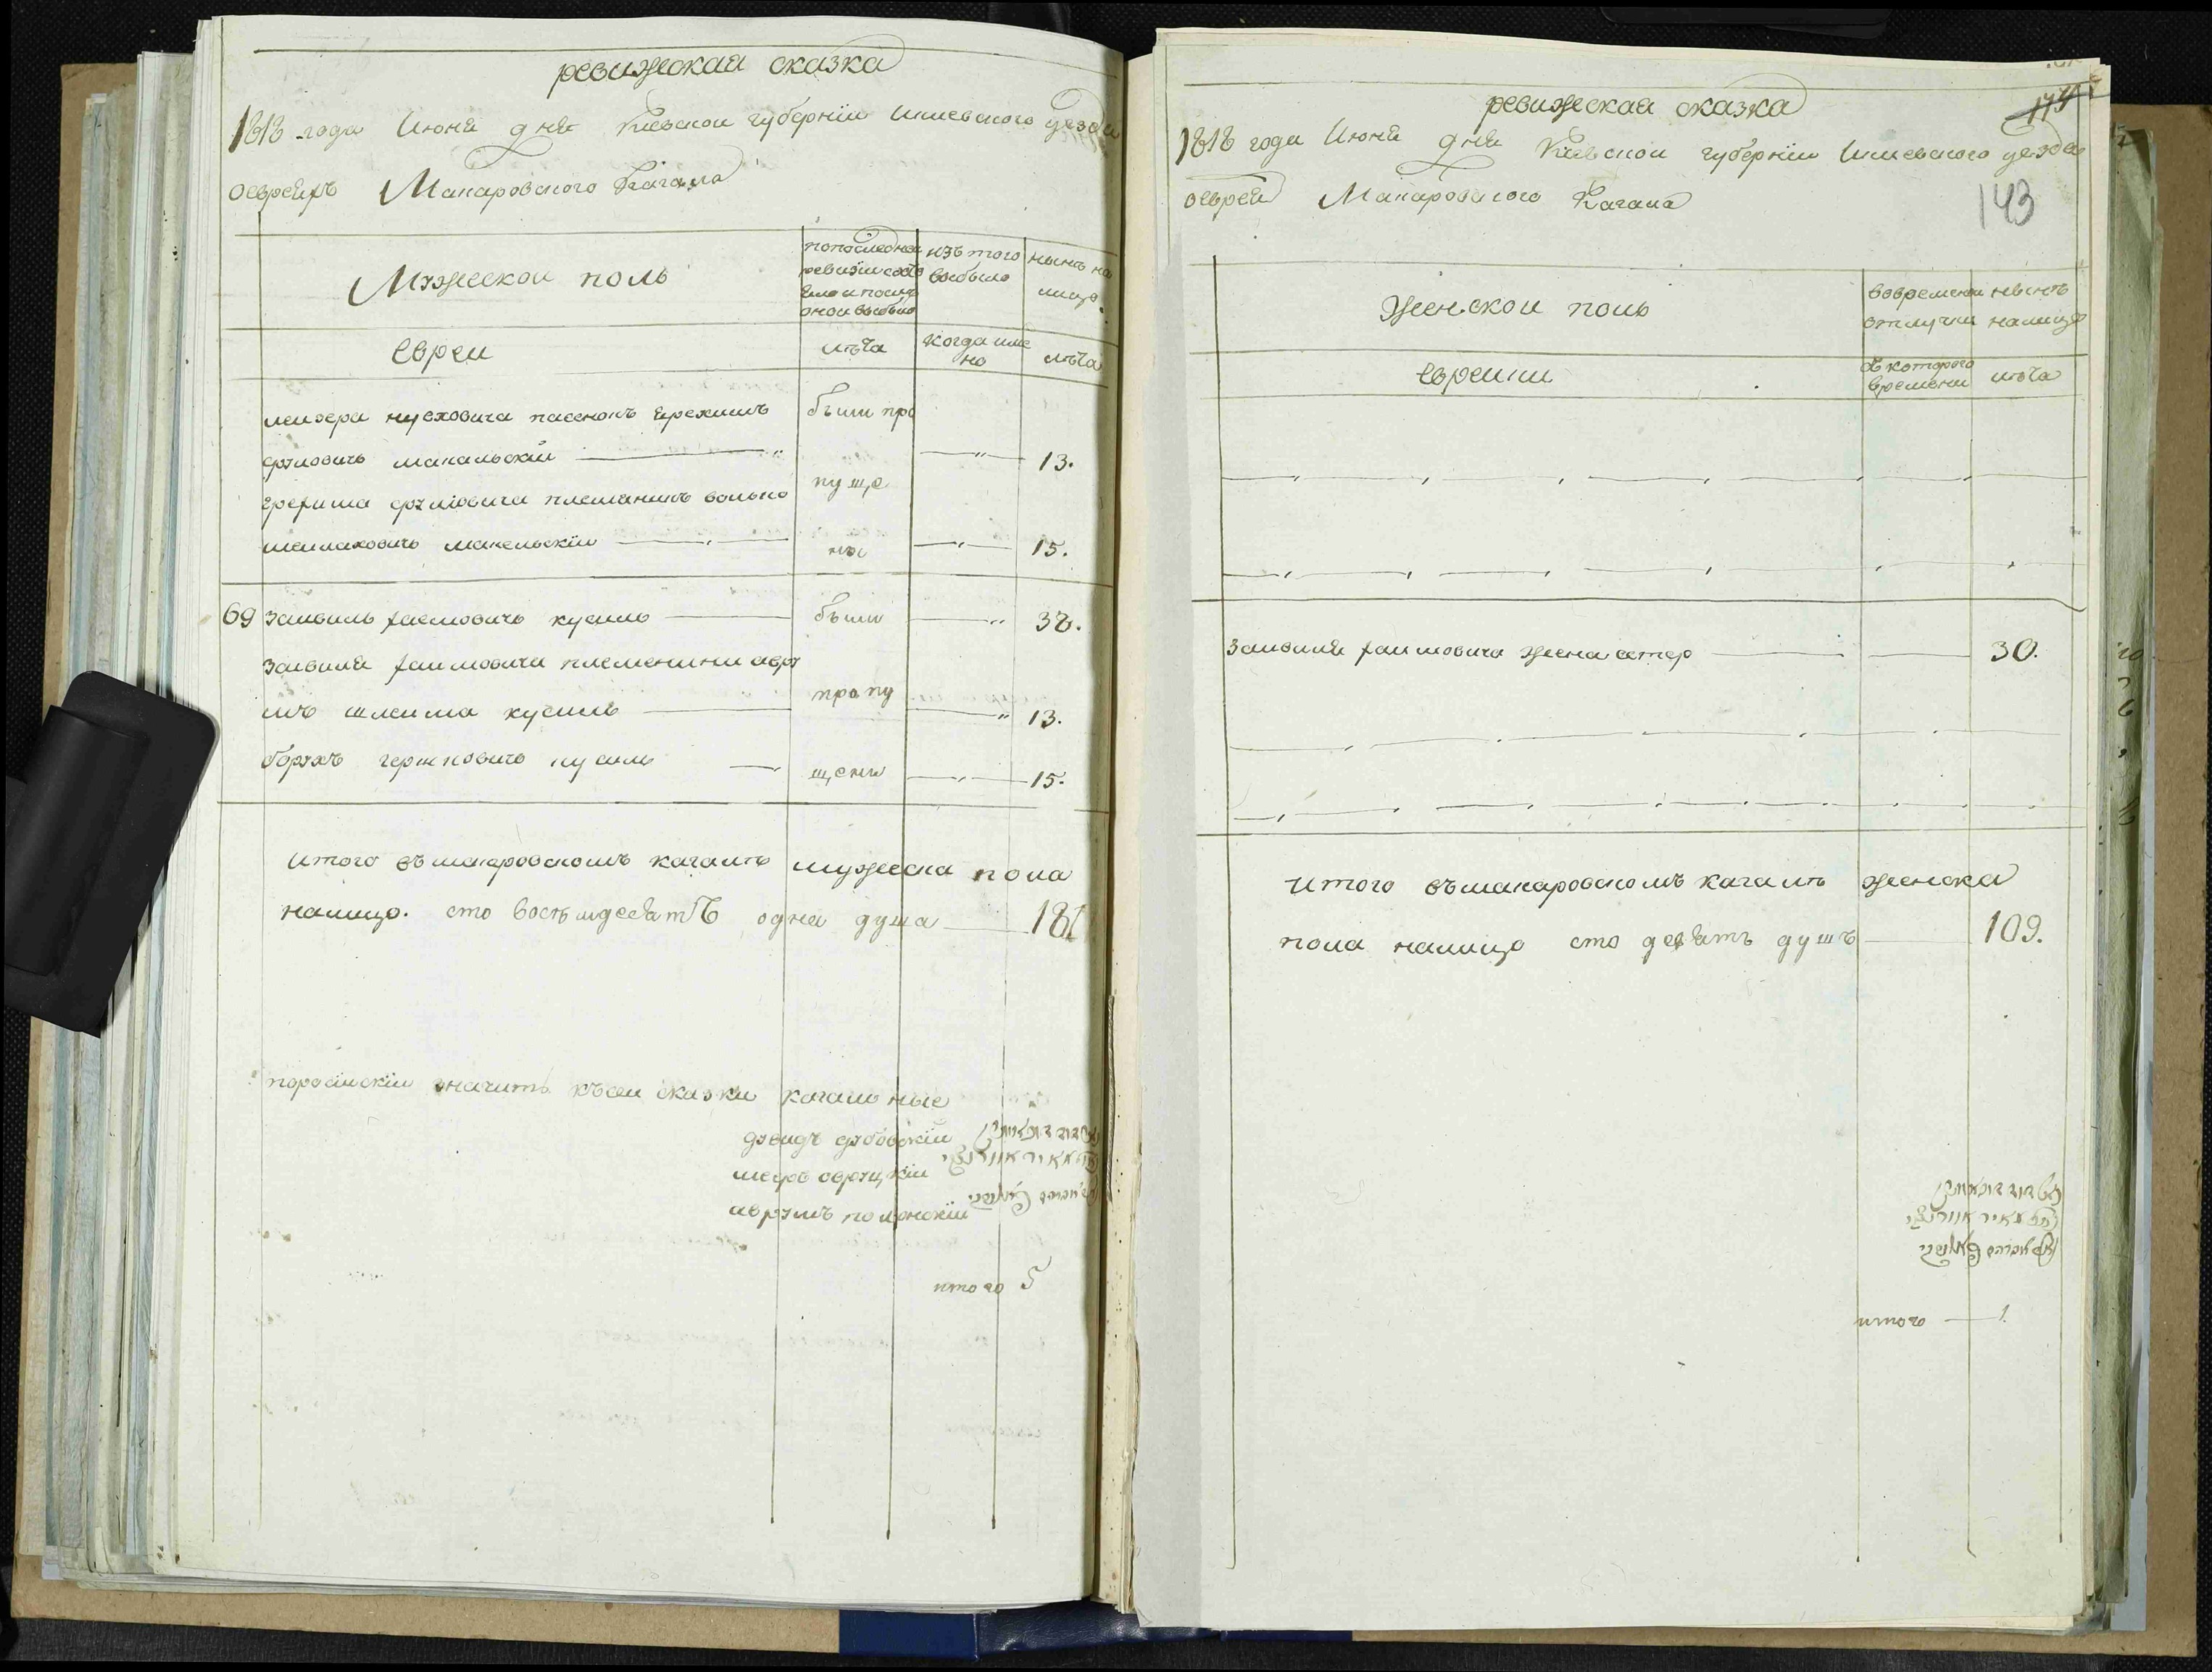 ревижская сказка
1818 года Июня дня Киевской губернїи Киевского уезда
оевреяхъ Макаровского Кагала
Мужеской полъ
попоследней ревизїи состо
яло и после оной выбыло
изъ того выбыло
нынѣ на лицо.
Евреи
лѣта
когда имено
лѣта
лейзера нусховича пасенокъ Ерехимъ
были про
сруловичъ макальскїй 13.
пуще
Ерехима сруловича племяникъ волько
шмилаховичъ макельскїй 15.
ны
69 Зайвиль хаемовичъ кусиль были 38.
Зайвиля хаимовича племеники авру
мъ шлейма кусиль пропу 13.
борухъ гершковичъ кусиль щены 15.
Итого въмакаровскомъ кагалѣ мужеска пола
налицо. сто восемдесятъ одна душа 181
поросїйскїи значитъ късей сказки кагальные
дувидъ дубовскїй
меиръ овруцкїй
аврумъ полонскїй
итого 5
ревижеская сказка
1818 года Июня дня Киевской губернїи Киевского уезда
оеврея Макаровского Кагала
143
Женской полъ
вовременной отлучки
нынѣ налицо
Еврейки
съкоторого времени
лѣта
Зайвиля хаимовича жена естер 30.
Итого въмакаровскомъ кагалѣ женска
пола налицо сто девять душъ 109.
итого 1.